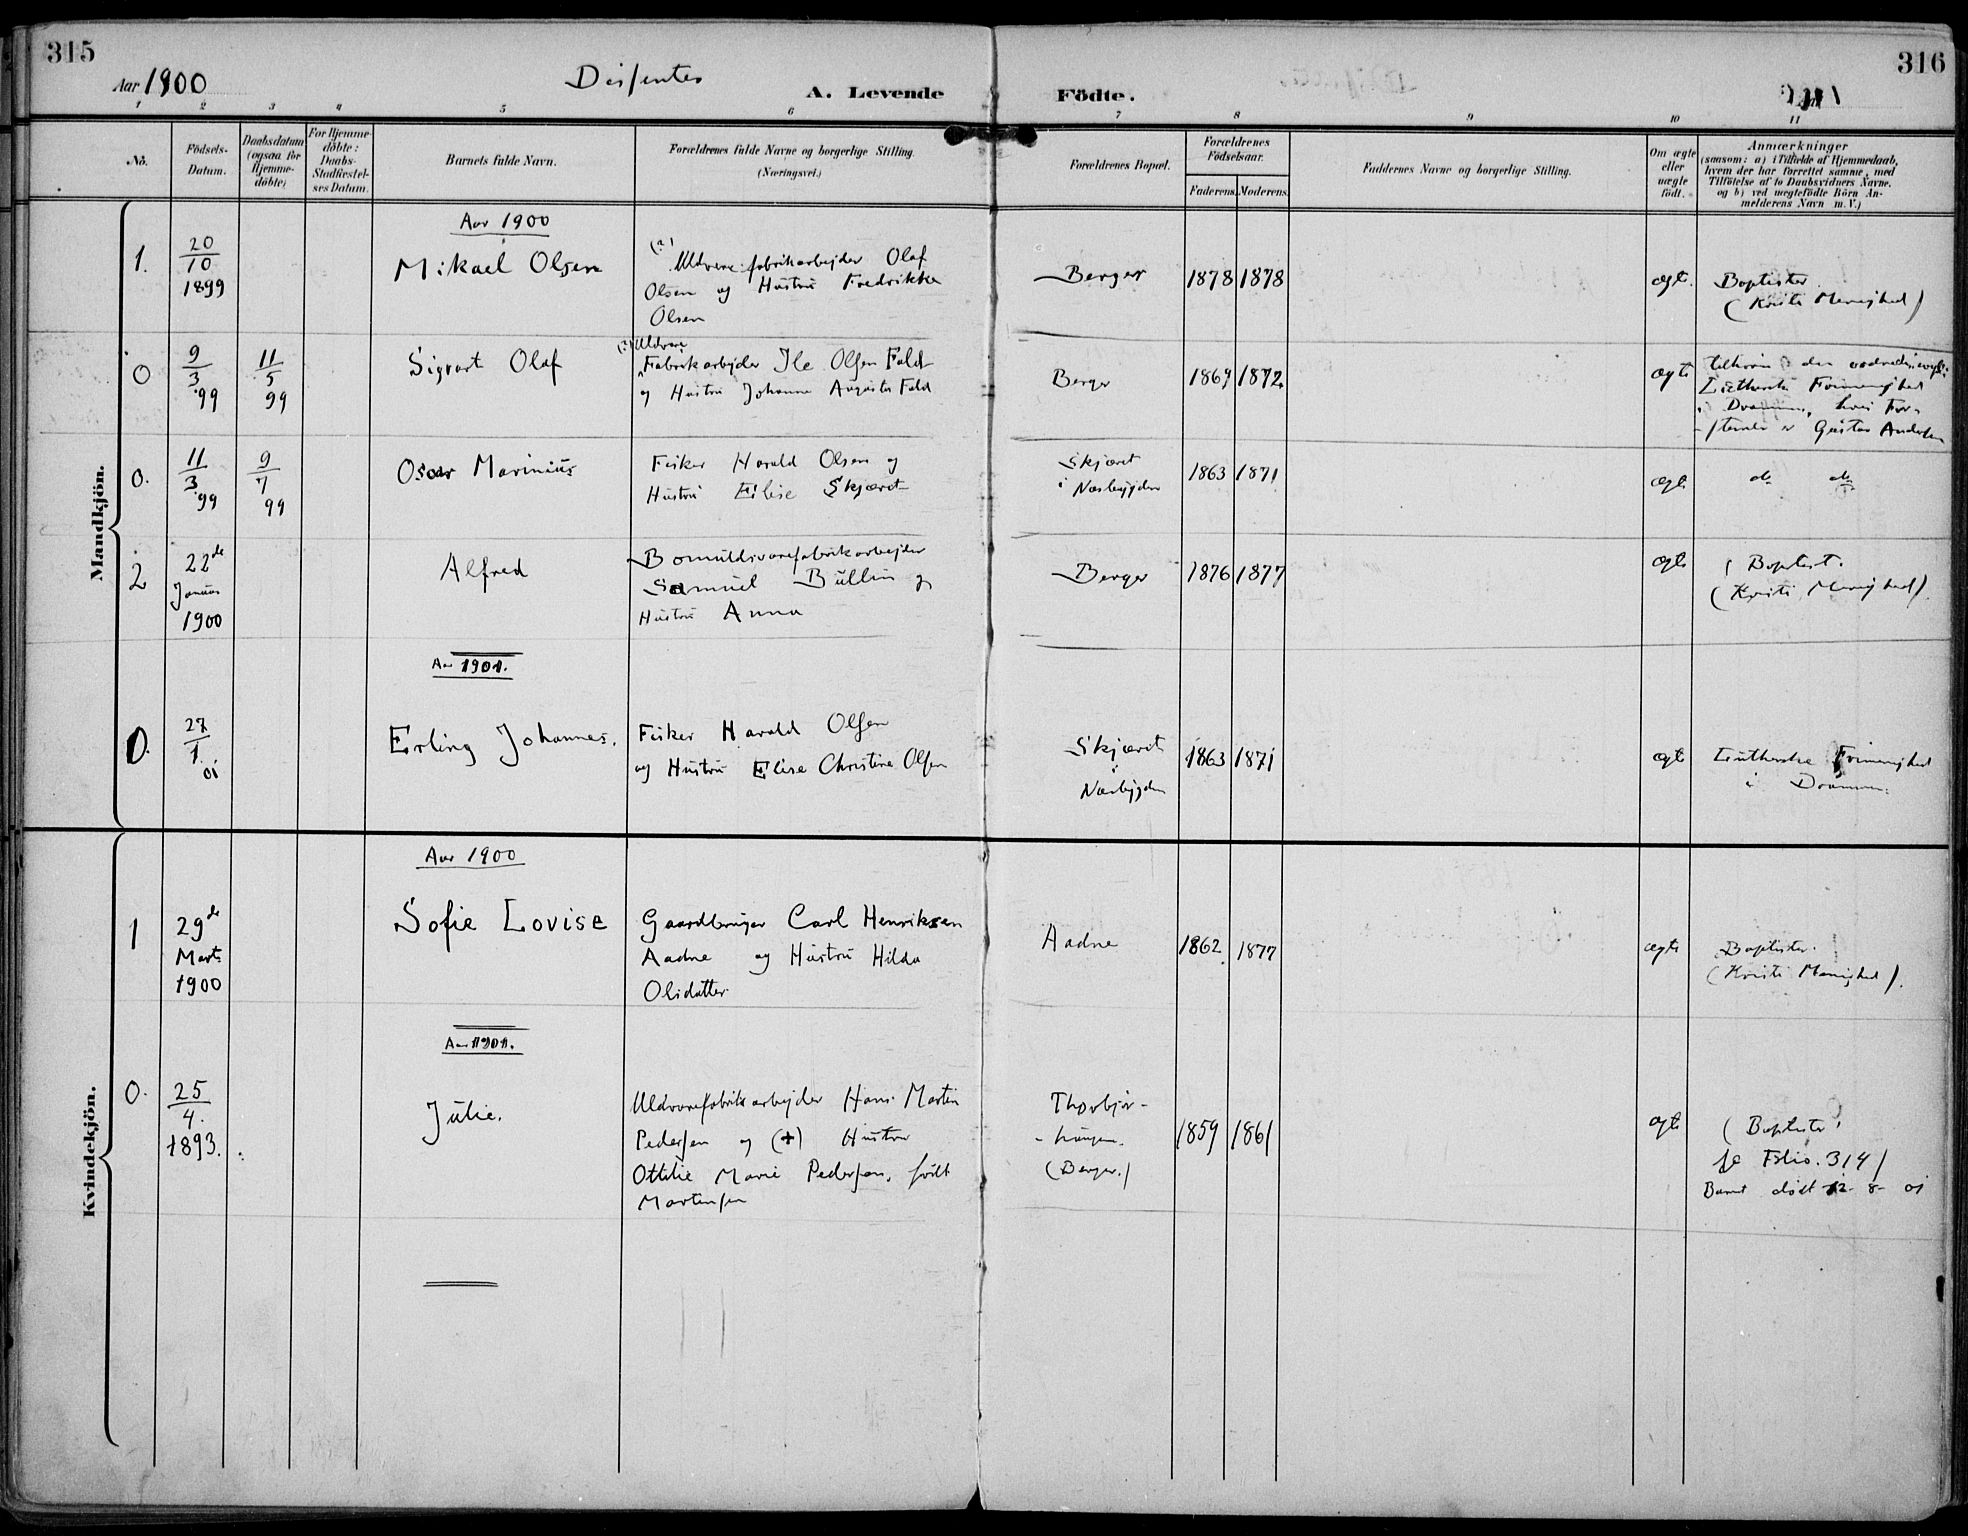 315
316
Aar 1900
Disfenter
A. Levende
Födte.
1 2 3 4 5 6 7 8 9 10 11
No.
Födsels-
Datum.
Daabsdatum
(ogsaa for
Hjemme-
döbte)
For Hjemme-
döbte:
Daabs-
Stadfæstel-
ses Datum.
Barnets fulde Navn.
Forældrenes fulde Navne og borgerlige Stilling.
(Næringsvei.)
Forældrenes Bopæl.
Forældrenes
Födselsaar.
Faderens. Moderens.
Faddernes Navne og borgerlige Stilling.
Om ægte
eller
uægte
födt.
Anmærkninger
(saasom: a) i Tilfælde af Hjemmedaab,
hvem der har forrettet samme, med
Tilföielse af to Daabsvidners Navne.
og b) ved uægtefödte Börn An-
melderens Navn m. V.)
Mandkjön.
Aar 1900
1.
20/10
1899
Mikael Olsen
(?) Uldvarefabrikarbejder Olaf
Olsen og Hustru Fredrikke
Olsen
Berger
1878 1878
ægte.
Baptister.
(Kristi Menighed)
0
9/3 99
11/5 99
Sigvart Olaf
(?) Uldvare
Fabrikarbejder Ile Olsen Fald
og Hustru Johanne Augusta Fald
Berger
1869 1872
ægte
Lutherske Frimenighed
i Drammen, hvis For-
stander er Gustav Andersen
0.
11/3 99
9/7 99
Oscar Marinius
Fisker Harald Olsen og
Hustru Elise Skjæret
Skjæret
i Næsbygden
1863 1871
ægte
do do
2
22de
Januar
1900
Alfred
Bomuldsvarefabrikarbejder
Samuel Bullin og
Hustru Anna
Berger
1876 1877
ægte
(Baptist.
(Kristi Menighed)
Aar 1901.
0.
27/1 01
Erling Johannes.
Fisker Harald Olsen
og Hustru Elise Christine Olsen
Skjæret
i
Næsbygden
1863 1871
ægte
Lutherske Frimenighed
i Drammen.
Kvindekjön.
Aar 1900
1
29de
Marts
1900
Sofie Lovise
Gaardbruger Carl Henriksen
Aadne og Hustru Hilda
Olsdatter
Aadne
1862 1877
ægte
Baptister.
(Kristi Menighed).
Aar 1901.
0.
25/4.
1893.
Julie.
Uldvarefabrikarbejder Hans Martin
Pedersen og (+) Hustru
Ottilie Marie Pedersen, født
Martensen
Thorbjør-
(Berger.)
1859 1861
ægte
(Baptister
se Folio. 314)
Barnet dødt 12-8-01